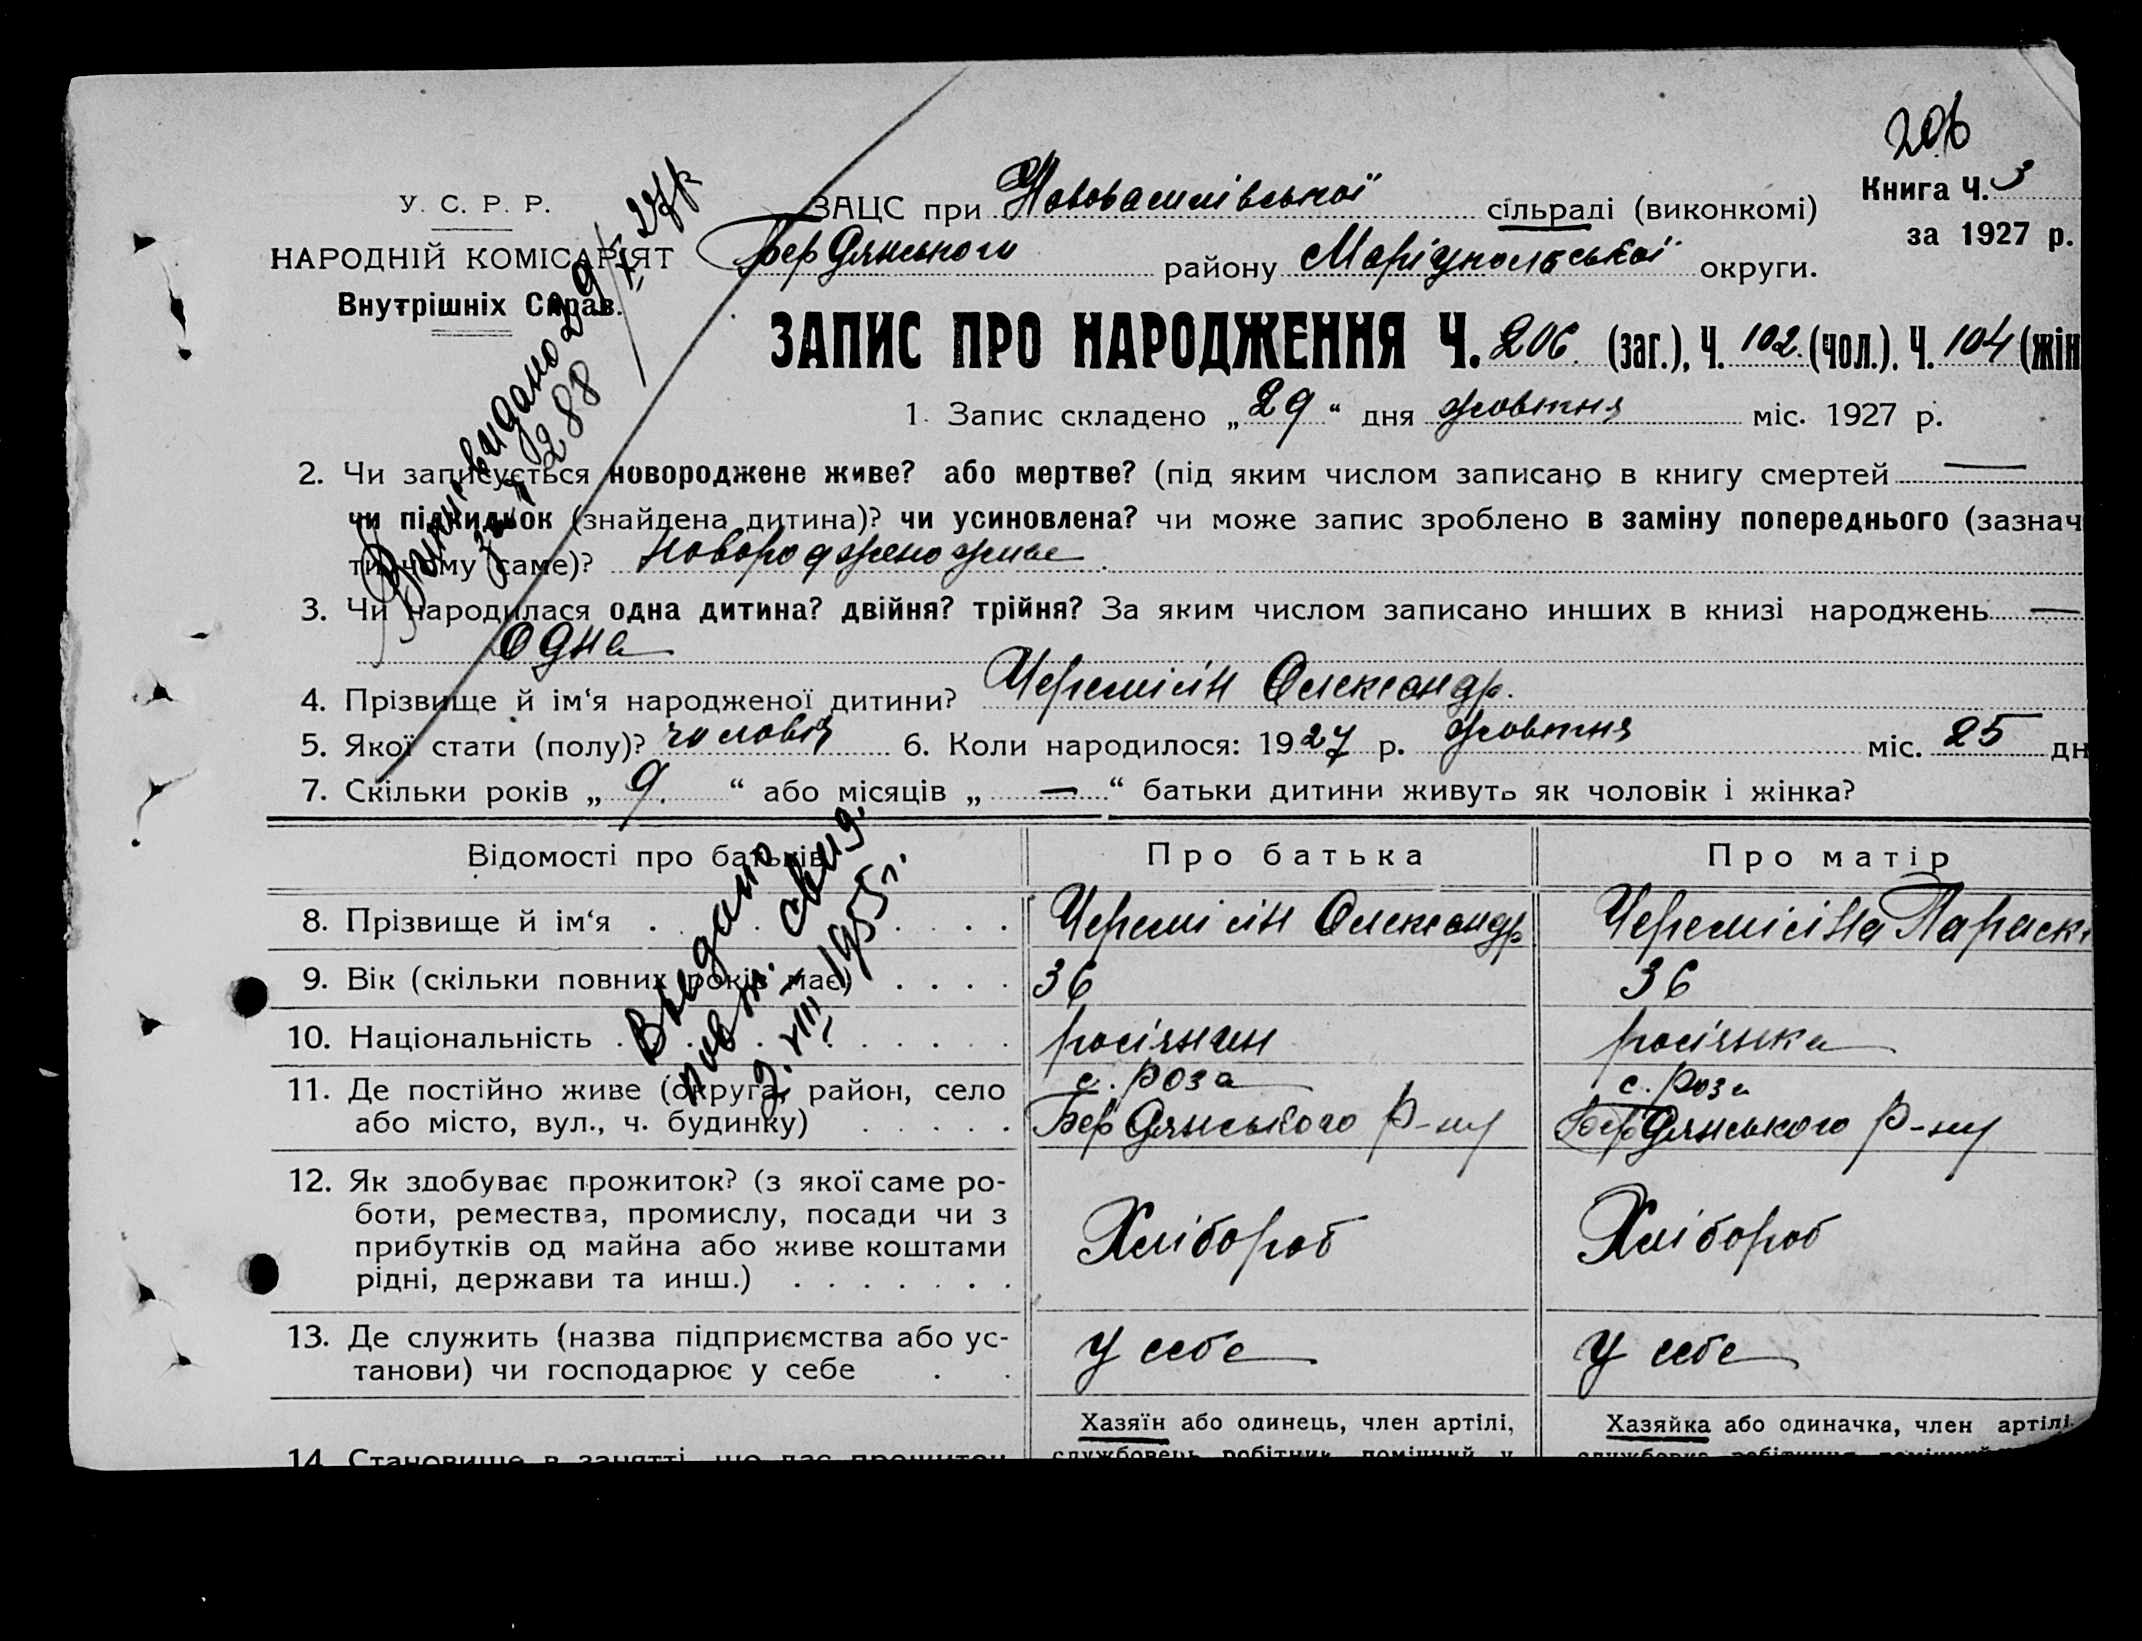 206
У. С. Р. Р.
НАРОДНІЙ КОМІСАРІЯТ
Внутрішніх Справ.
ЗАЦС при Нововасилівської сільраді (виконкомі)
Книга Ч. 3
за 1927 р.
Бердянського району Маріупольської округи.
ЗАПИС ПРО НАРОДЖЕННЯ Ч. 206. (заг.), Ч. 102. (чол.). Ч. 104 (жін
1. Запис складено „29“ дня жовтня міс. 1927 р.
видано 29/X 27 р
за № 288
2. Чи записується новороджене живе? або мертве? (під яким числом записано в книгу смертей —
чи підкидьок (знайдена дитина)? чи усиновлена? чи може запис зроблено в заміну попереднього (зазнач
ти чому саме)? новороджено живе.
3. Чи народилася одна дитина? двійня? трійня? За яким числом записано инших в книзі народжень —
одна
4. Прізвище й ім‘я народженої дитини? Черемісін Олександр.
5. Якої стати (полу)? чоловіч 6. Коли народилося: 1927 р. жовтня міс. 25 дн
7. Скільки років „9.“ або місяців „—“ батьки дитини живуть як чоловік і жінка?
Відомості про батьків
Про батька
Про матір
Выдано
повт. свид.
9. VIII 1955 г.
8. Прізвище й ім‘я . . . . . . . . . Черемісін Олександр Черемісіна Параск
9. Вік (скільки повних років має) . . . . 36 36
10. Національність . . . . . . . . . росіянин росіянка
11. Де постійно живе (округа, район, село
або місто, вул., ч. будинку) . . . . .
с. Роза
Бердянського р-ну
с. Роза
Бердянського р-ну
12. Як здобуває прожиток? (з якої саме ро-
боти, ремества, промислу, посади чи з
прибутків од майна або живе коштами
рідні, держави та инш.) . . . . . . .
Хлібороб
Хлібороб
13. Де служить (назва підприємства або ус-
танови) чи господарює у себе . .
У себе
У себе
14. Становище в занятті, що дає прожиток
Хазяїн або одинець, член артілі,
службовець, робітник, помічний у
Хазяйка або одиначка, член артілі.